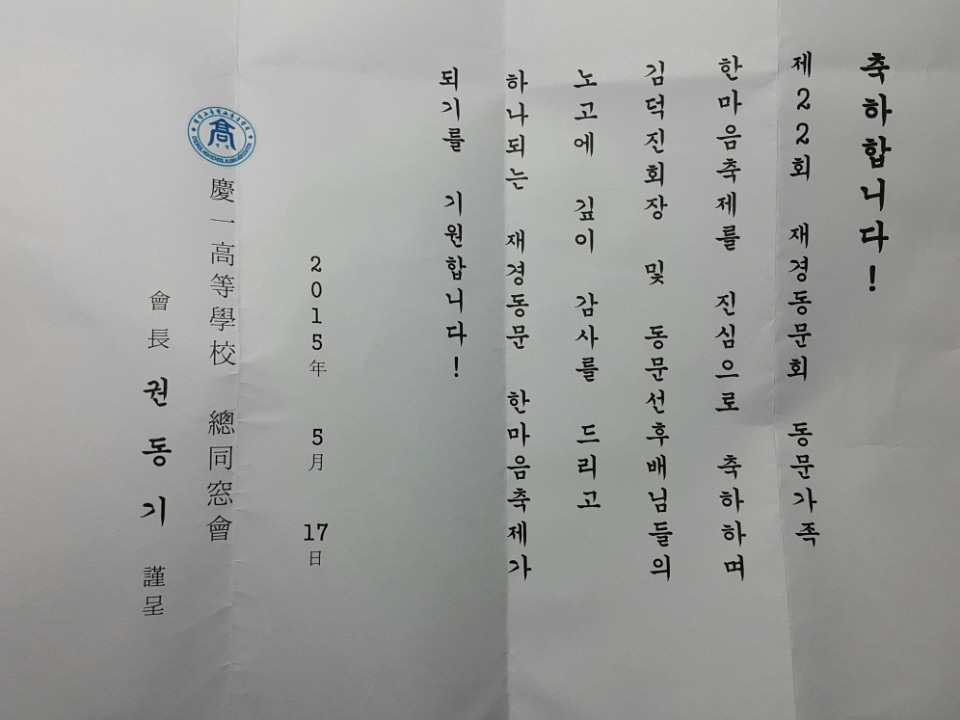 축하합니다!
제22회 재경동문회 동문가족
한마음축제를 진심으로 축하하며
김덕진회장 및 동문선후배님들의
노고에 깊이 감사를 드리고
하나되는 재경동문 한마음축제가
되기를 기원합니다!
2015年 5月 17日
慶一高等學校 總同窓會
會長 권동기 謹呈
高